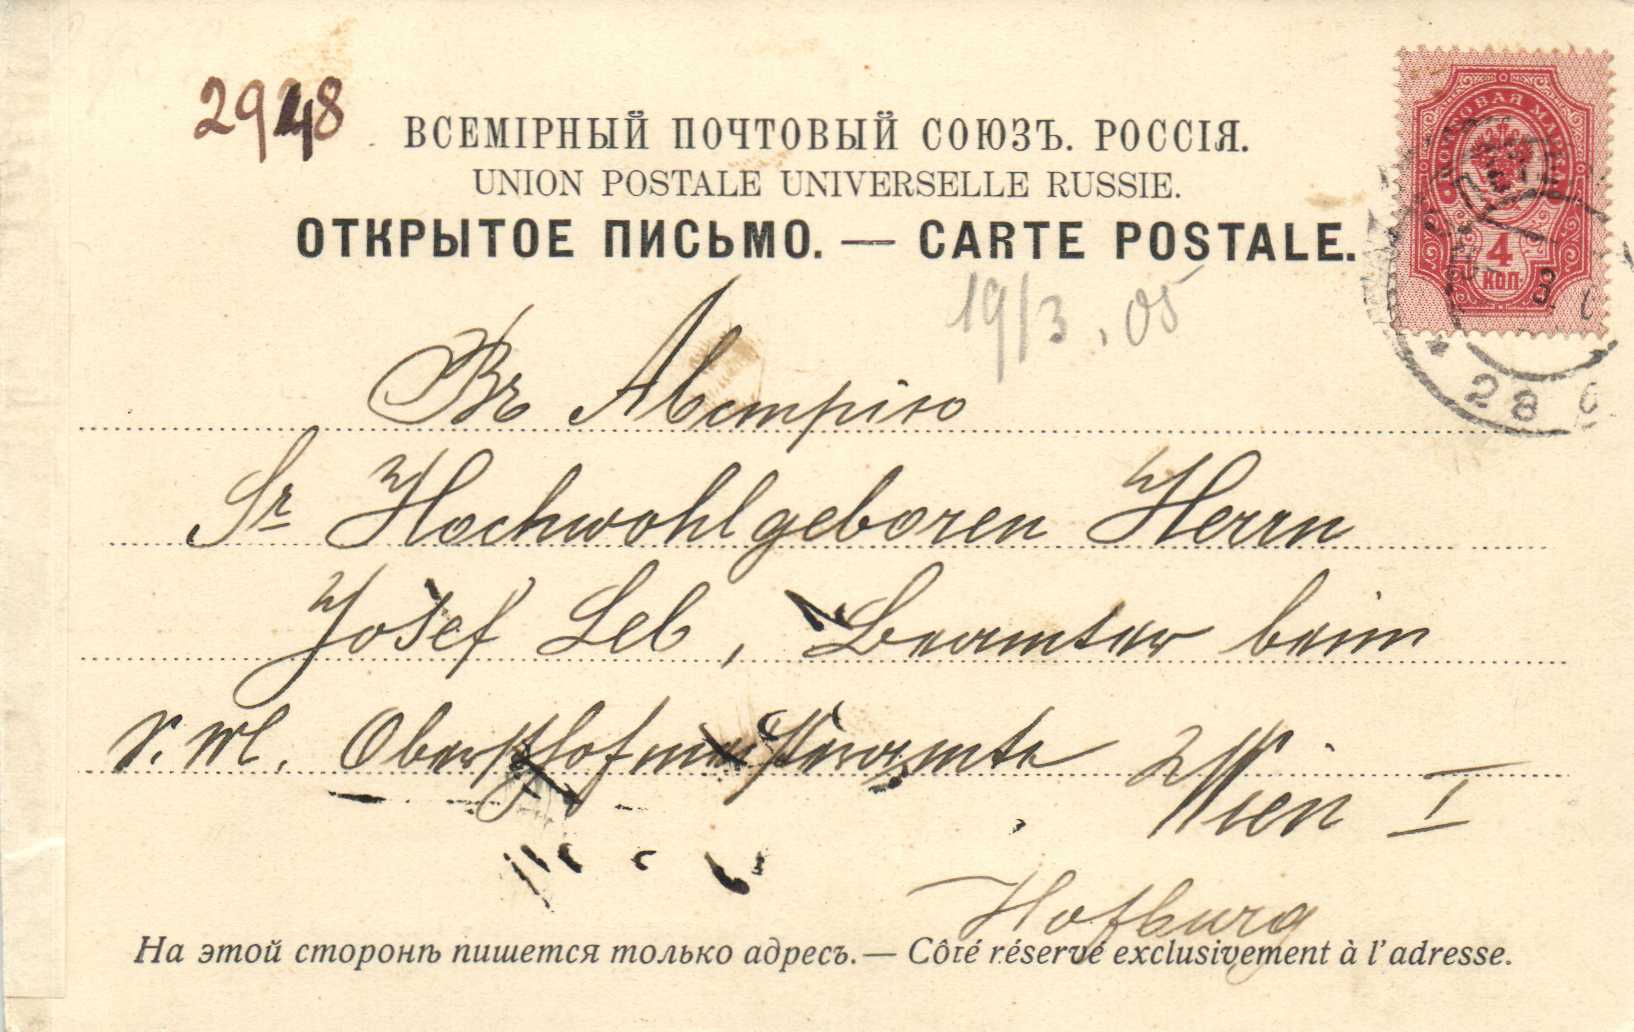 2948
ВСЕМІРНЫЙ ПОЧТОВЫЙ СОЮЗЪ. РОССІЯ.
UNION POSTALE UNIVERSELLE RUSSIE.
ОТКРЫТОЕ ПИСЬМО. — CARTE POSTALE.
ПОЧТОВАЯ МАРКА
4
КОП.
19/3.05
28
Въ Австрію
Sr Hochwohlgeboren Herrn
Josef Leb, Beamter beim
Obersthofmeisteramte Wien I
Hofburg
На этой сторонѣ пишется только адресъ. — Côté réservé exclusivement à l'adresse.